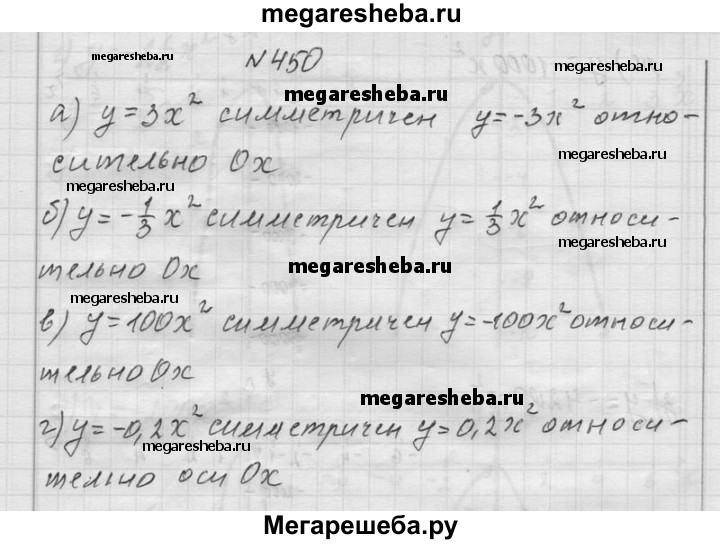 megaresheba.ru
megaresheba.ru
№450
megaresheba.ru
megaresheba.ru
а) y=3x² симметричен y=-3x² отно-
сительно Ox
megaresheba.ru
megaresheba.ru
б) y=-1/3 x² симметричен y=1/3 x² относи-
megaresheba.ru
тельно Ox
megaresheba.ru
megaresheba.ru
megaresheba.ru
в) y=100x² симметричен y=-100x² относи-
тельно Ox
megaresheba.ru
г) y=-0,2x² симметричен y=0,2x² относи-
megaresheba.ru
megaresheba.ru
тельно оси Ox
Мегарешеба.ру